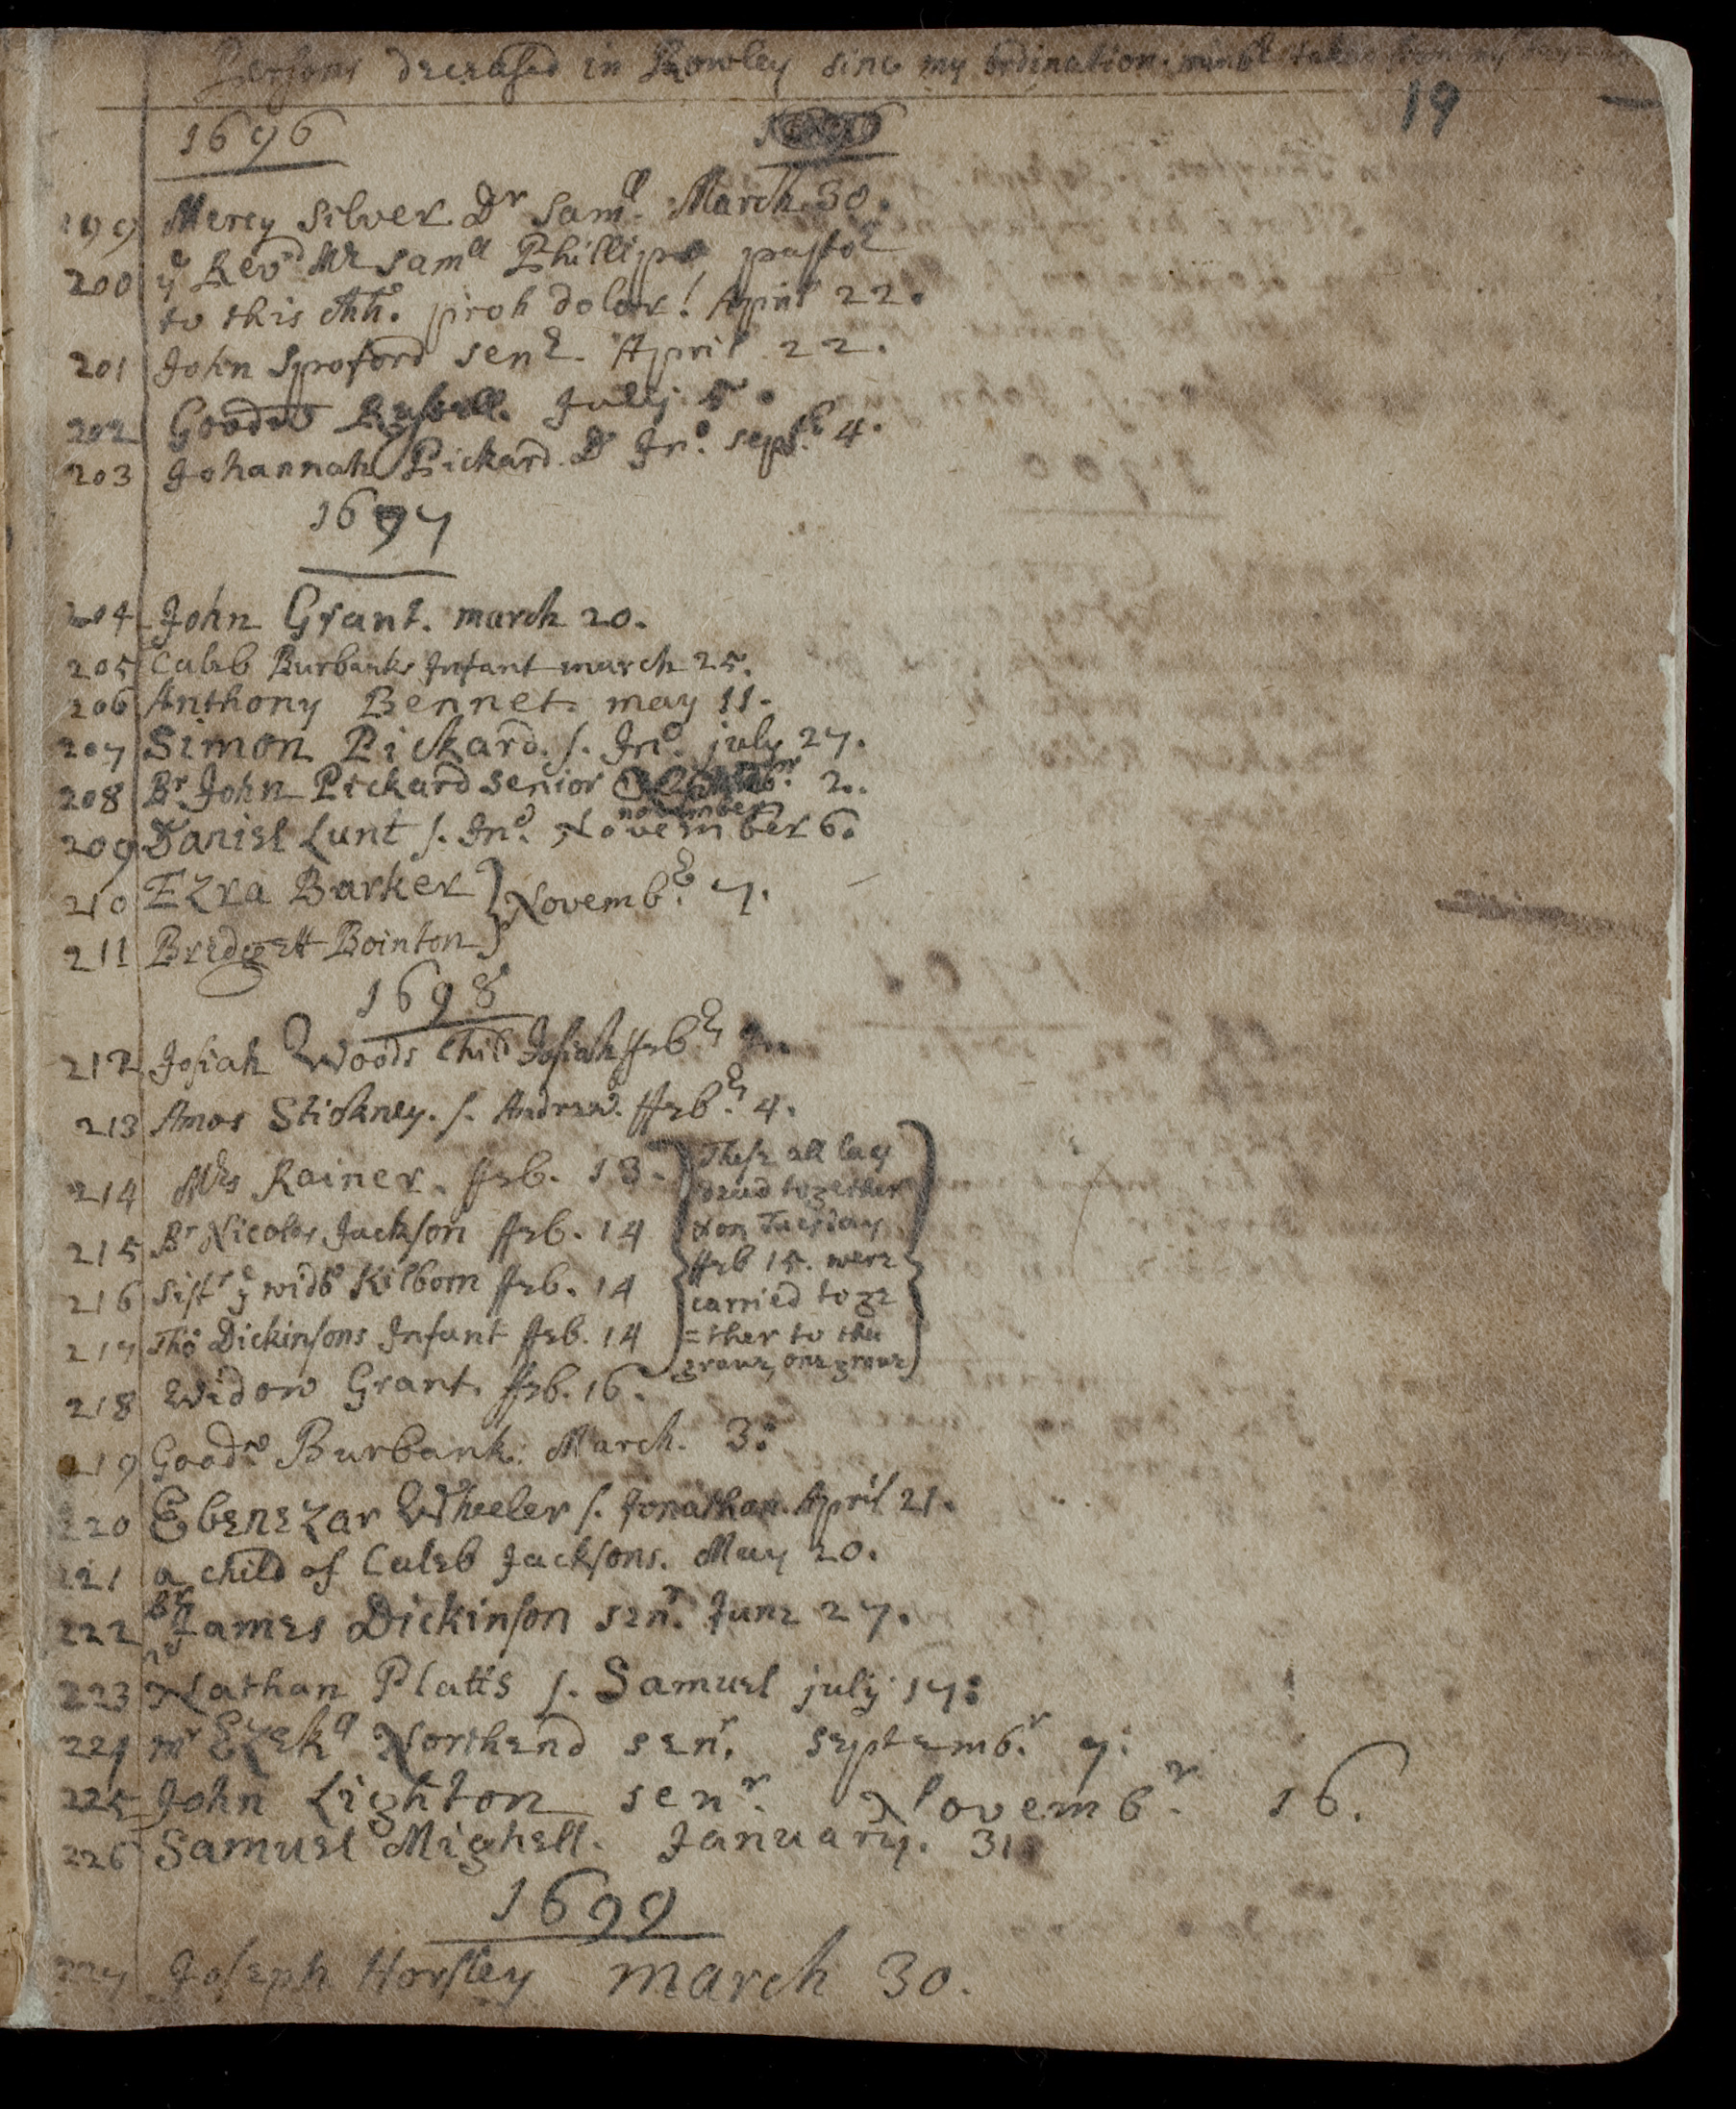 Persons deceased in Rowley sinc my ordination. numbr taken from my
19
1696
199 Mercy Silver Dr Samll. March 30.
200 ye Revd Mr Samll Phillips pastor
to this Chh. proh dolor! April 22.
201 John Spoford senr. April 22.
202 Goodw Rysbell. July 5.
203 Johannah Pickard. D Jno. Septr 4.
1697
204 John Grant. march 20.
205 Caleb Burbanks Infant march 25.
206 Anthony Bennet. may 11.
207 Simon Pickard. s. Jno. july 27.
208 Br John Pickard senior 2.
november
209 Daniel Lunt s. Jno. November 6.
210 Ezra Barker } Novembr. 7.
211 Bredgett Bointon }
1698
212 Josiah Woods Child Josiah ffebr
213 Amos Stickney. s. Andrew. ffebr. 4.
214 Mrs Rainer. ffeb. 13.
215 Br Nicolas Jackson ffeb. 14
216 Sistr ye widw Kilborn ffeb. 14
217 Tho Dickinsons Infant ffeb. 14
These all lay
dead together
& on Tuesday
ffeb 15. were
carried toge
=ther to the
grave, one grave
218 Widow Grant. ffeb. 16.
219 Goodw Burbank. March. 3.
220 Ebenezar Wheeler s. Jonathan. April 21.
221 a child of Caleb Jacksons. May 20.
222 Br James Dickinson senr. June 27.
223 Nathan Platts s. Samuel july 17:
224 mr Ezekll Northend senr. septembr. 7:
225 John Lighton senr. Novembr. 16.
226 Samuel Mighell. January. 31
1699
227 Joseph Horsley march 30.